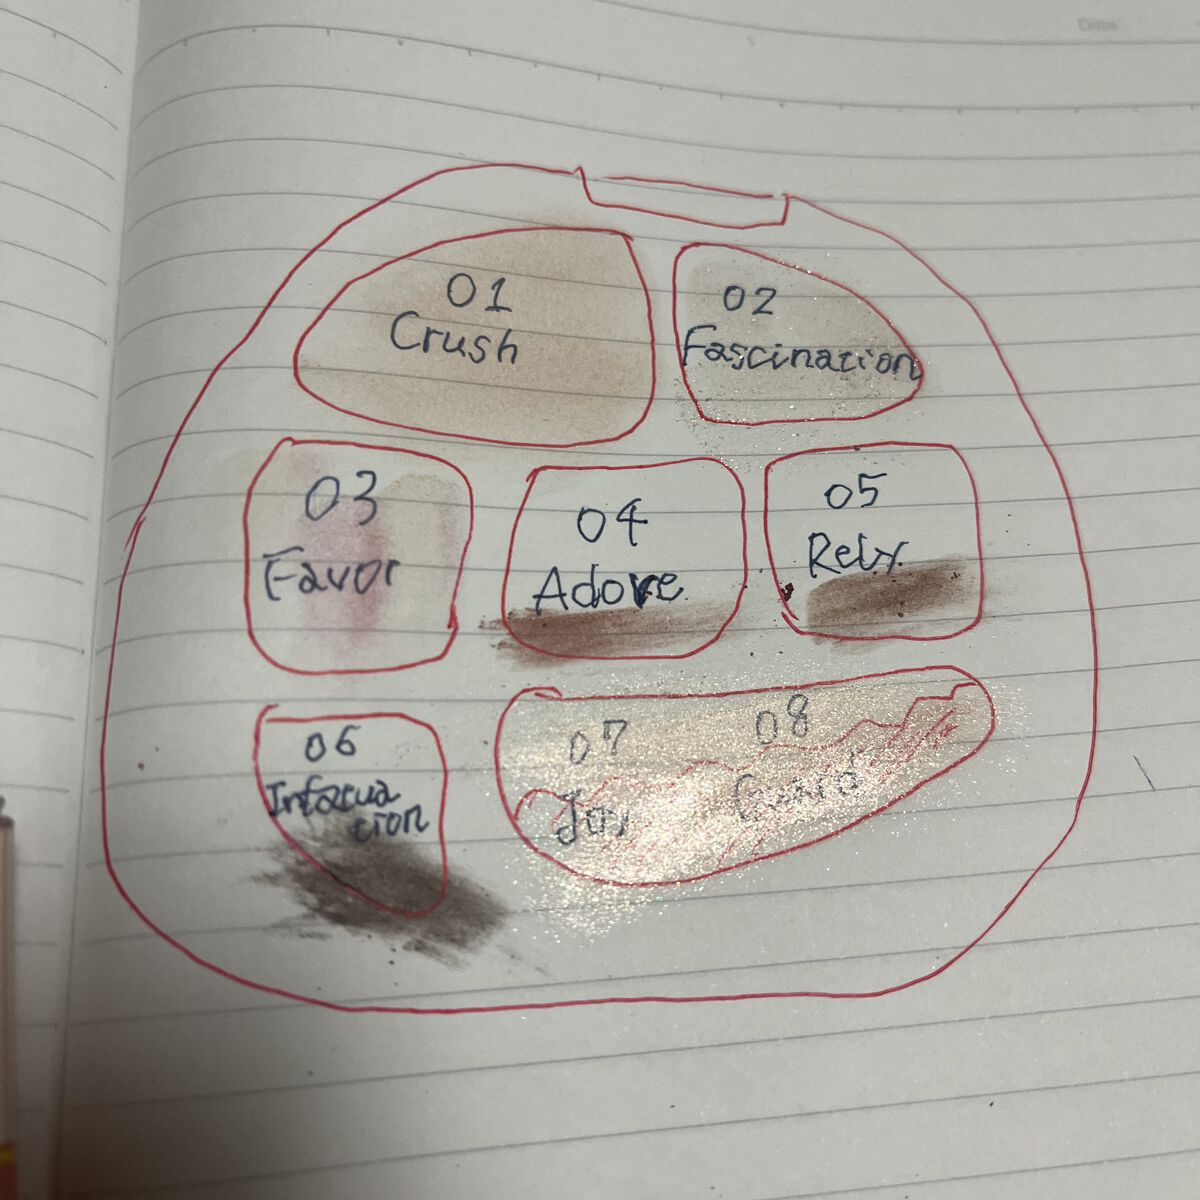 01
Crush
02
Fascination
03
Favor
04
Adore
05
Relx
06
Infatua
tion
07
Joy
08
Guard